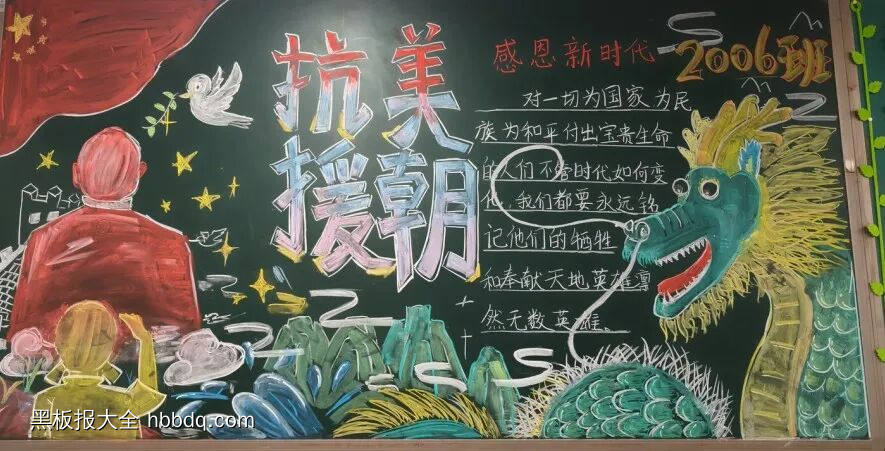 抗美
援朝
感恩新时代
2006班
对一切为国家为民
族为和平付出宝贵生命
的人们不管时代如何变
化,我们都要永远铭
记他们的牺牲
和奉献天地英雄凛
然无数英雄。
黑板报大全 hbbdq.com